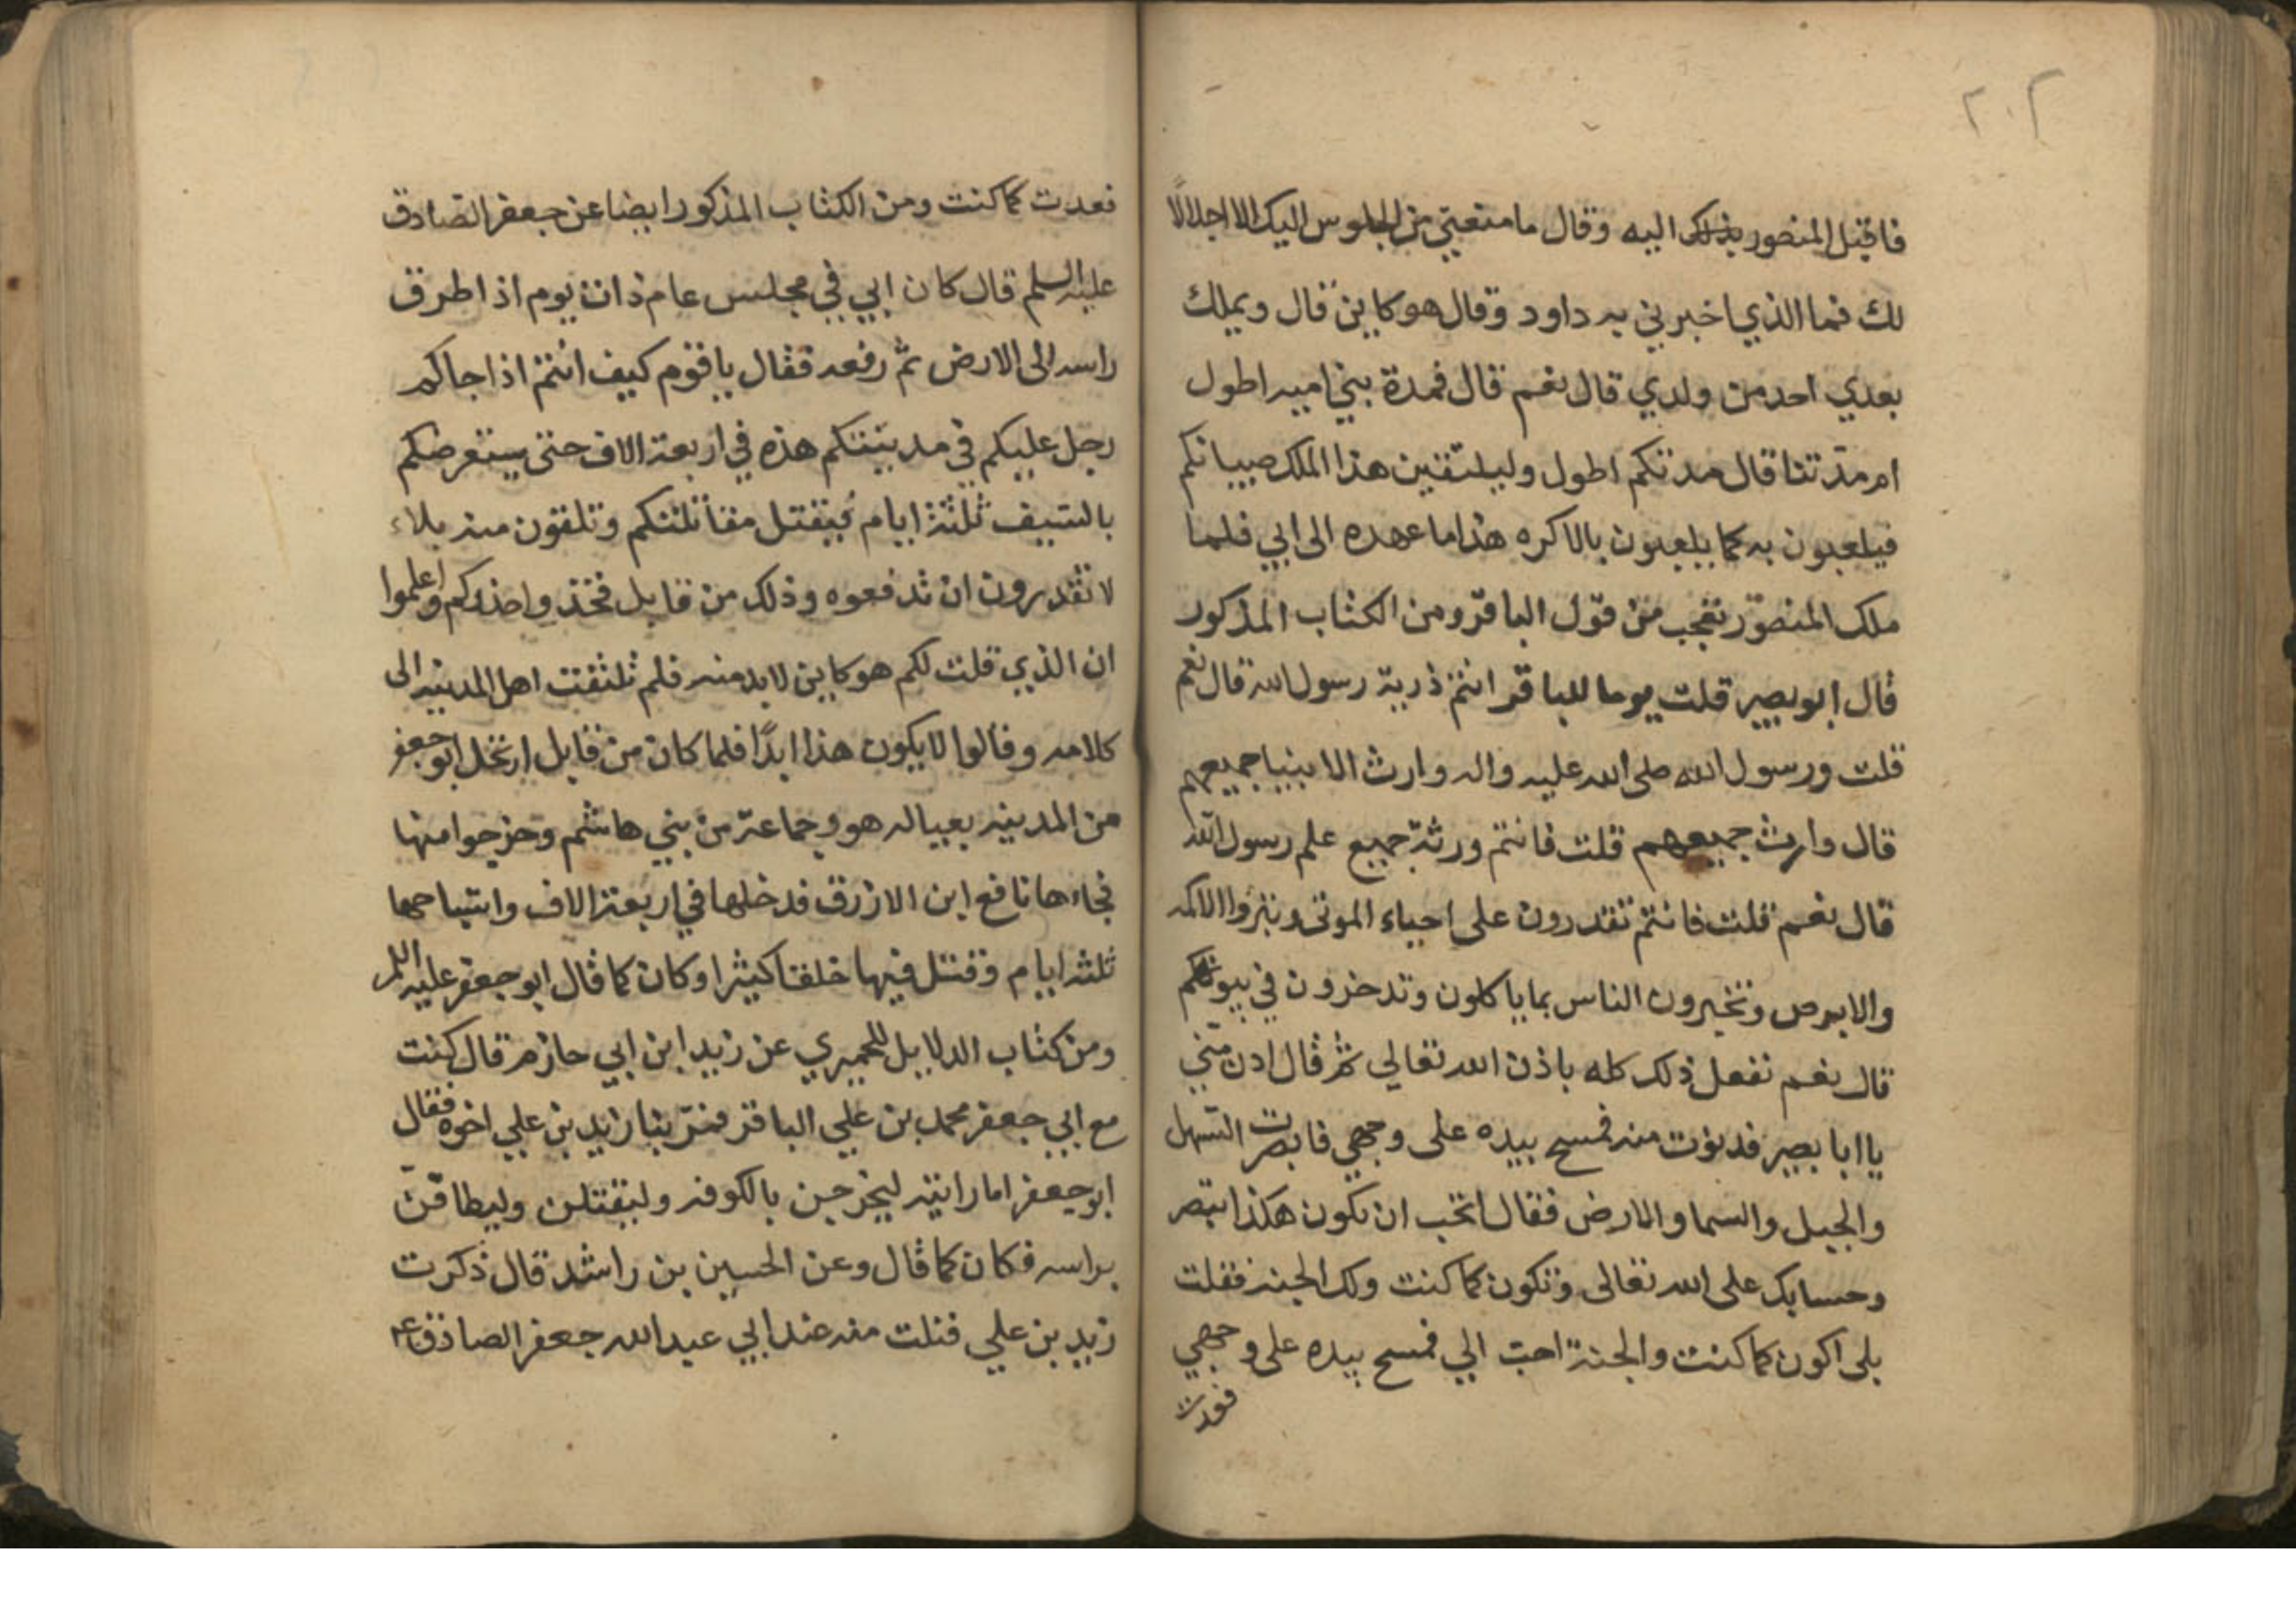 ٢٠٢
فاقبل المنصور بذلك اليه وقال ما منعني من الجلوس اليك الا اجلالا
لك فما الذي اخبرني به داود وقال هو كاين قال ويملك
بعدي احد من ولدي قال نعم قال فمدة بني اميه اطول
ام مدتنا قال مدتكم اطول وليلتقين هذا الملك صبيانكم
فيلعبون به كما يلعبون بالاكره هذا ما عهده الى ابي فلما
ملك المنصور تعجب من قول الباقر ومن الكتاب المذكور
قال ابو بصير قلت يوما للباقر انتم ذرية رسول الله قال نعم
قلت ورسول الله صلى الله عليه واله وارث الانبيا جميعهم
قال وارث جميعهم قلت فانتم ورثة جميع علم رسول الله
قال نعم قلت فانتم تقدرون على احياء الموتى وتبرؤا الاكمه
والابرص وتخبرون الناس بما ياكلون وتدخرون في بيوتكم
قال نعم نفعل ذلك كله باذن الله تعالي ثم قال ادن مني
يا ابا بصير فدنوت منه فمسح بيده على وجهي فابصرت السهل
والجبل والسما والارض فقال اتحب ان تكون هكذا تبصر
وحسابك على الله تعالى وتكون كما كنت ولك الجنه فقلت
بلى اكون كما كنت والجنة احب الي فمسح بيده على وجهي
فعدت
فعدت كما كنت ومن الكتاب المذكور ايضا عن جعفر الصادق
عليه السلم قال كان ابي في مجلس عام ذات يوم اذ اطرق
راسه الى الارض ثم رفعه فقال يا قوم كيف انتم اذا جاكم
رجل عليكم في مدينتكم هذه في اربعة الاف حتى يستعرضكم
بالسيف ثلثة ايام فيقتل مقاتلتكم وتلقون منه بلاء
لا تقدرون ان تدفعوه وذلك من قابل فخذوا حذركم واعلموا
ان الذي قلت لكم هو كاين لابد منه فلم تلتفت اهل المدينه الى
كلامه وقالوا لا يكون هذا ابدًا فلما كان من قابل ارتحل ابو جعفر
من المدينه بعياله هو وجماعة من بني هاشم وخرجوا منها
فجاءها نافع ابن الازرق فدخلها في اربعة الاف واستباحها
ثلثه ايام وقتل فيها خلقا كثيرا وكان كما قال ابو جعفر عليه السلم
ومن كتاب الدلايل للحميري عن زيد ابن ابي حازم قال كنت
مع ابي جعفر محمد بن علي الباقر فمرّ بنا زيد بن علي اخوه فقال
ابو جعفر اما رايته ليخرجن بالكوفه وليقتلن وليطافنّ
براسه فكان كما قال وعن الحسين بن راشد قال ذكرت
زيد بن علي فنلت منه عند ابي عبد الله جعفر الصادق ع